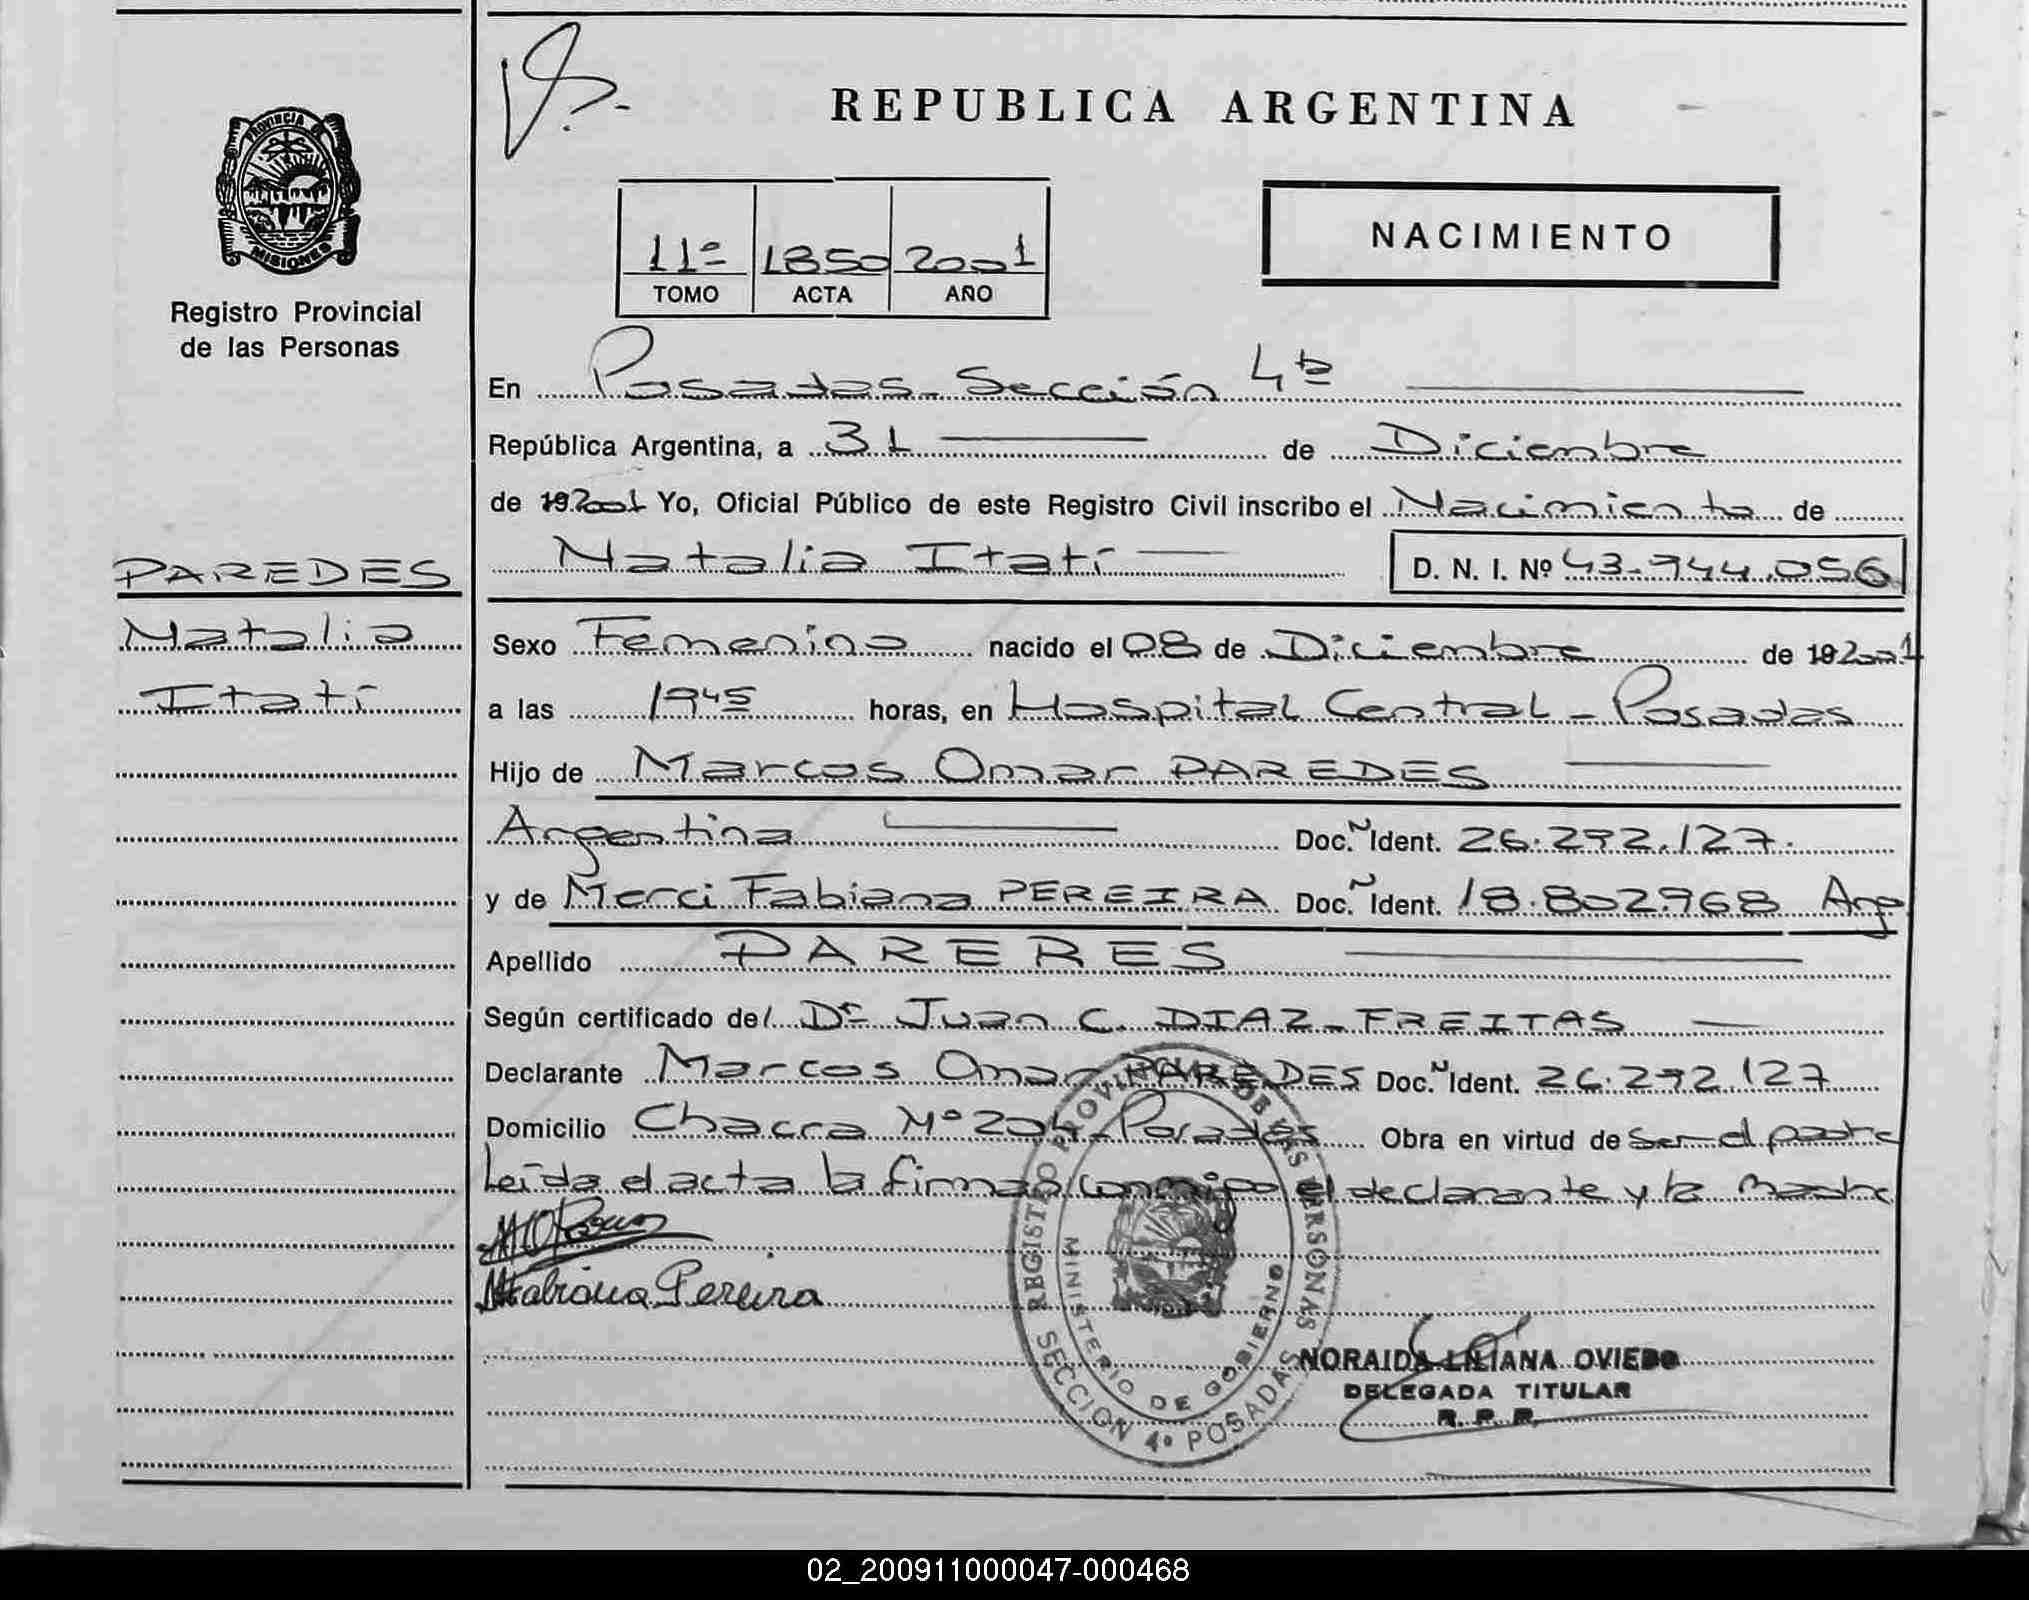 REPUBLICA ARGENTINA
PROVINCIA DE
MISIONES
Registro Provincial
de las Personas
NACIMIENTO
11º 1850 2001
TOMO ACTA AÑO
En Posadas - Sección 4ta
República Argentina, a 31 de Diciembre
de 192001 Yo, Oficial Público de este Registro Civil inscribo el Nacimiento de
Natalia Itatí D. N. I. Nº 43.944.056
PAREDES
Natalia
Itatí
Sexo Femenino nacido el 08 de Diciembre de 192001
a las 19 45 horas, en Hospital Central - Posadas
Hijo de Marcos Omar PAREDES
Argentina Doc. N Ident. 26.292.127.
y de Merci Fabiana PEREIRA Doc. N Ident. 18.802.968 Arg
Apellido PARERES
Según certificado del Dr Juan C. DIAZ - FREITAS
Declarante Marcos Omar PAREDES Doc. N Ident. 26.292.127
Domicilio Chacra Nº 204 - Posadas Obra en virtud de ser el padre
Leída el acta la firman conmigo el declarante y la madre
MFabiana Pereira
REGISTRO PROVINCIAL DE LAS PERSONAS
MINISTERIO DE GOBIERNO
SECCION 4º POSADAS
NORAIDA LILIANA OVIEDO
DELEGADA TITULAR
R. P. P.
02_200911000047-000468